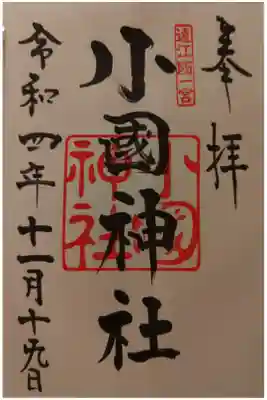 奉拝
遠江国一宮
小國神社
小國神社
令和四年十一月十九日